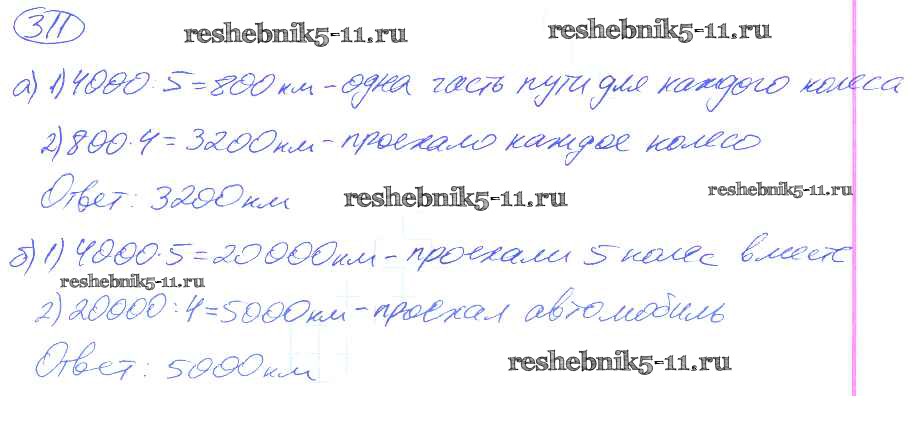 311 reshebnik5-11.ru reshebnik5-11.ru
а) 1) 4000 · 5 = 800 км - одна часть пути для каждого колеса
2) 800 · 4 = 3200 км - проехало каждое колесо
Ответ: 3200 км reshebnik5-11.ru reshebnik5-11.ru
б) 1) 4000 · 5 = 20000 км - проехали 5 колес вместе
reshebnik5-11.ru
2) 20000 : 4 = 5000 км - проехал автомобиль
Ответ: 5000 км reshebnik5-11.ru